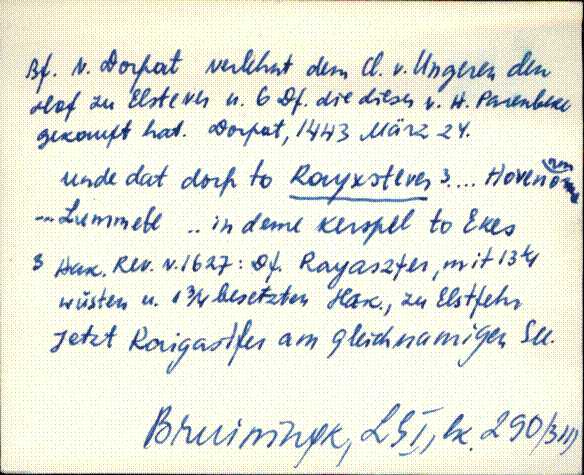 Bf. v. Dorpat verlehnt dem Cl. v. Ungeren den
Hof zu Elstever u. 6 Df. die dieser v. H. Parenbeke
gekauft hat. Dorpat, 1443 März 24.
unde dat dorp to Rayxstever 3. ... Hoven
... Lummebe .. in deme kerspel to Ekes
3 Hak. Rev. v. 1627: Df. Rayaszfer, mit 13 1/4
wüsten u. 1 3/4 besetzten Hak., zu Elstfehr
Jetzt Raigastfer am gleichnamigen See.
Bruiningk, LGI, lk. 290/311